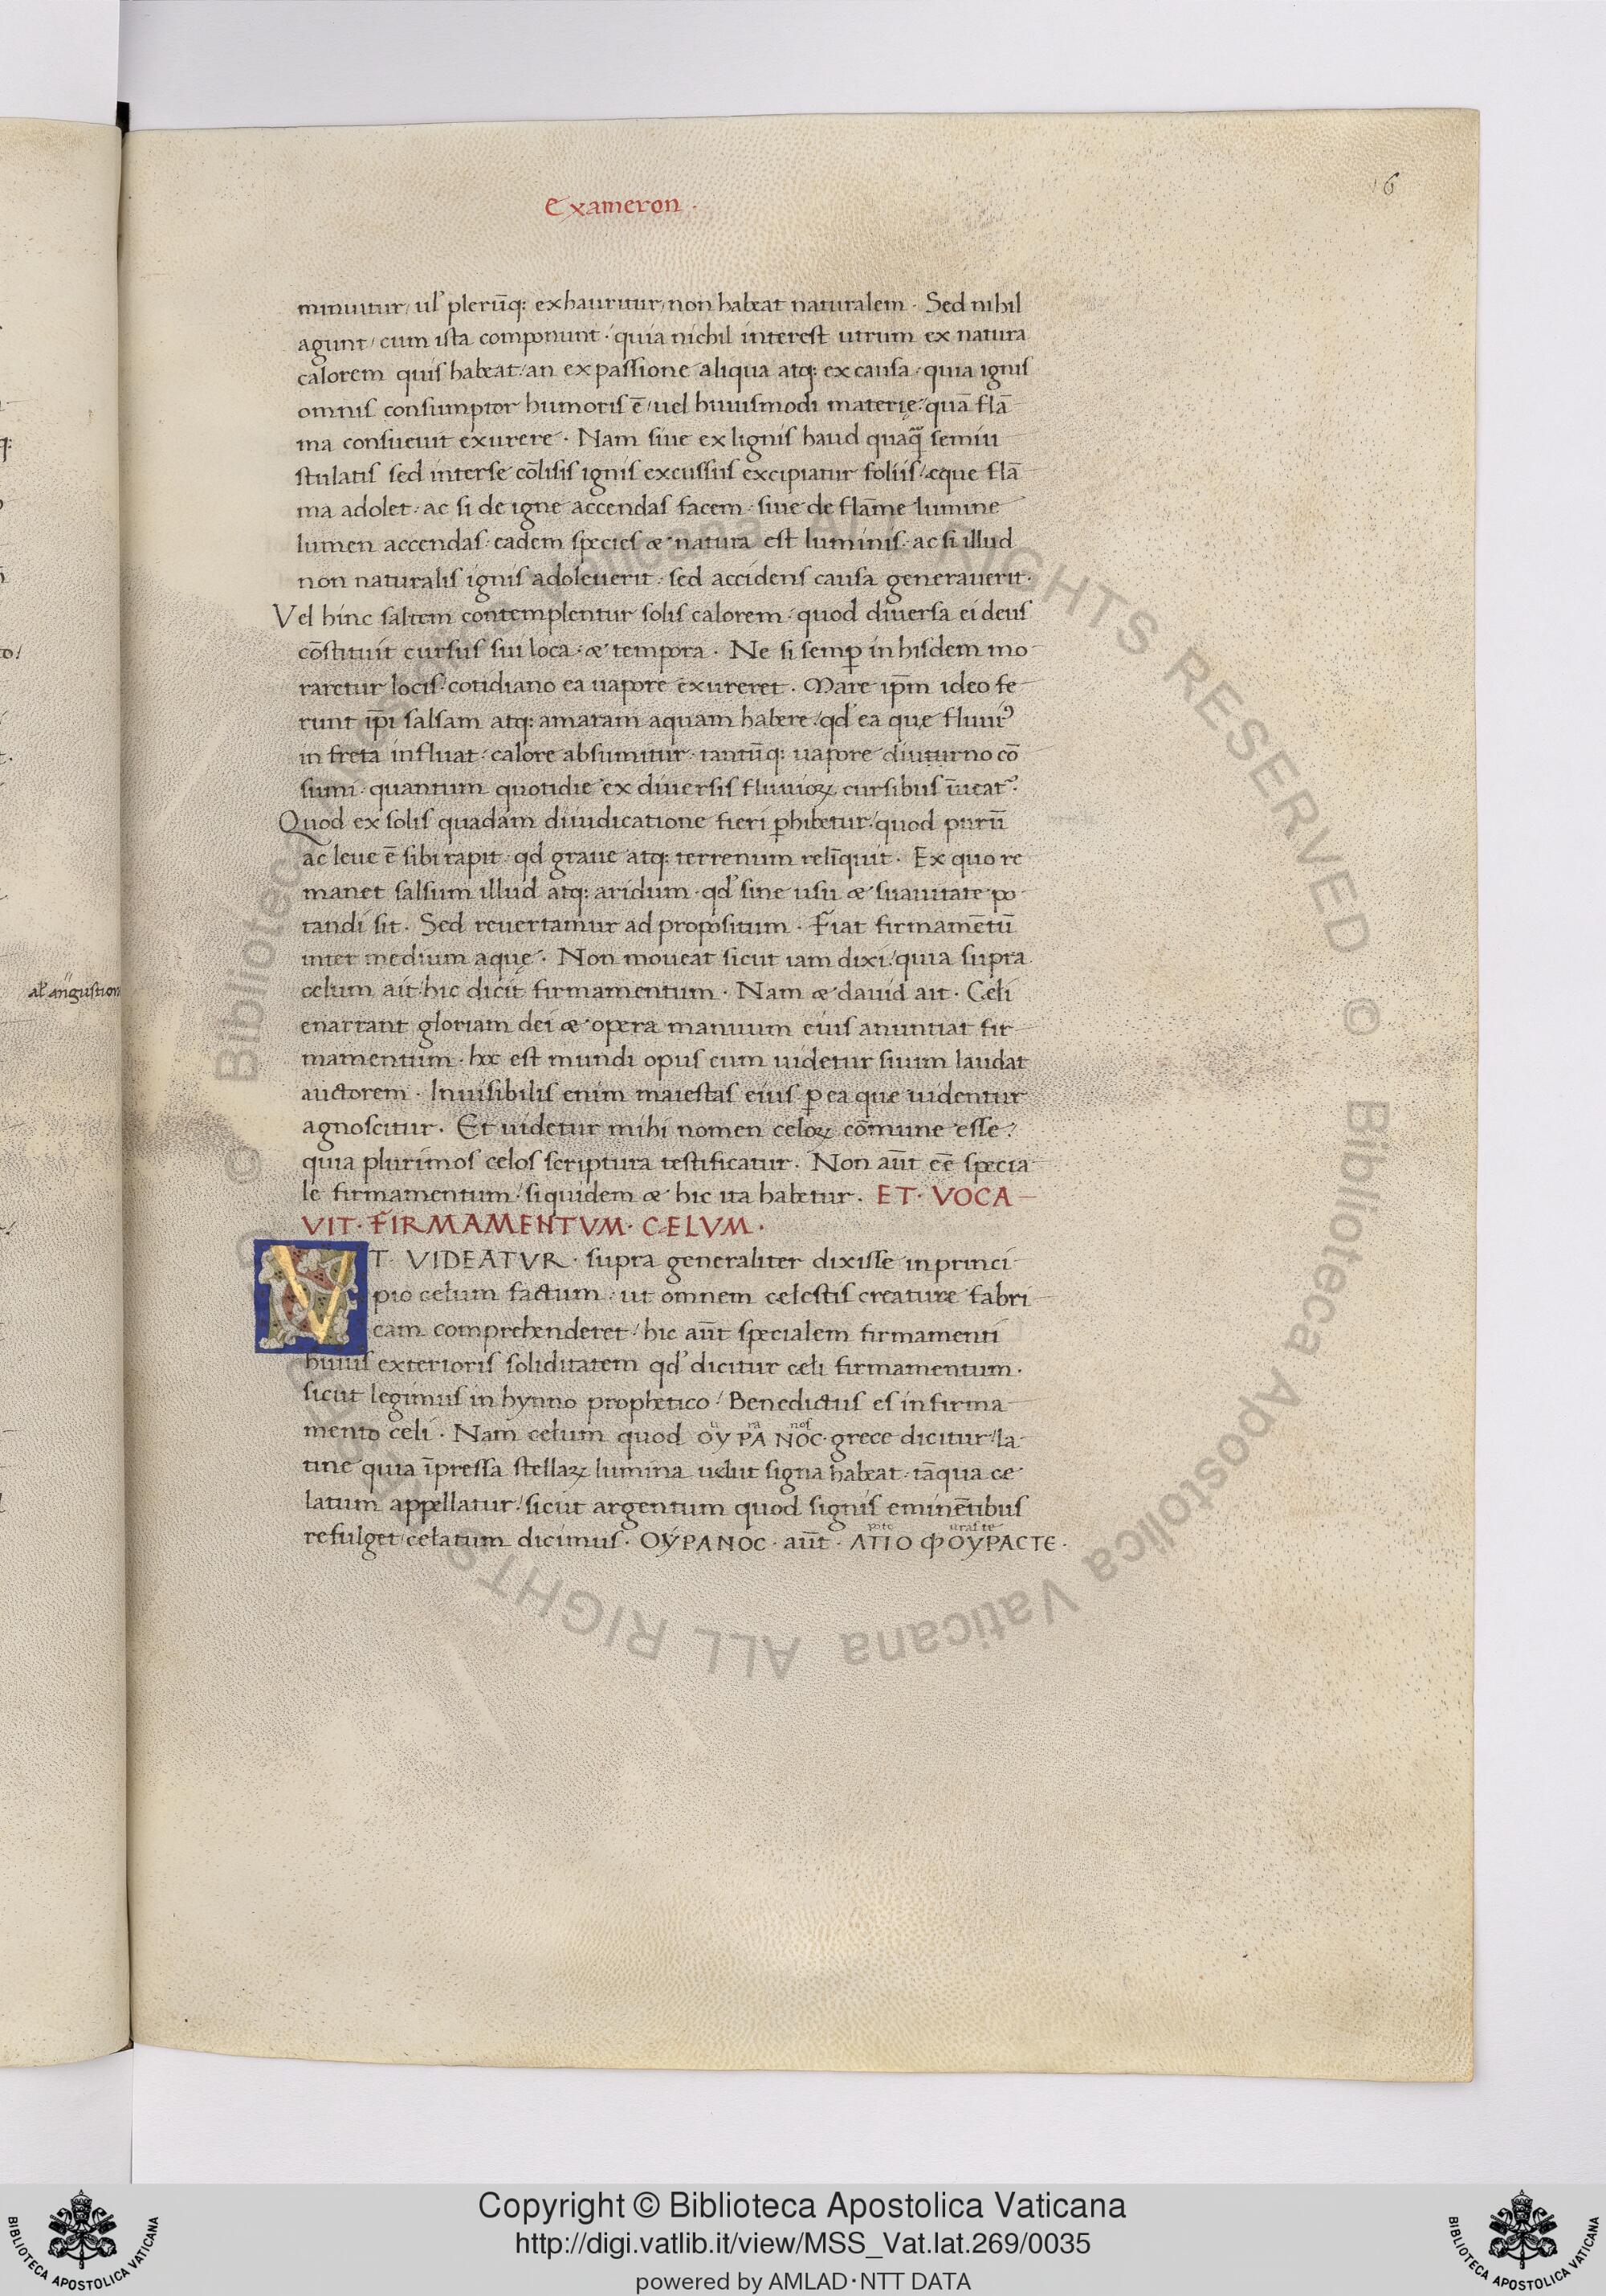 Exameron ·
16
minuitur / ulꝰ plerūq: exhauritur / non habeat naturalem · Sed nihil
agunt / cum ista componunt · quia nichil interest utrum ex natura
calorem quis habeat / an ex passione aliqua atq: ex causa · quia ignis
omnis consumptor humoris ē / uel huiusmodi materię · quā flā
ma consueuit exurere · Nam siue ex lignis haud quaq̄ semiu
stulatis sed inter se cōlisis ignis excussus excipiatur foliis / eque flā
ma adolet · ac si de igne accendas facem · siue de flāme lumine
lumen accendas · eadem species & natura est luminis · ac si illud
non naturalis ignis adoleuerit · sed accidens causa generauerit ·
Vel hinc saltem contemplentur solis calorem · quod diuersa ei deus
cōstituit cursus sui loca · & tempora · Ne si semꝑ in hisdem mo
raretur locis · cotidiano ea uapore exureret · Mare ip̄m ideo fe
runt ip̄i salsam atq: amaram aquam habere / qd' ea quę fluuit᾽
in freta influat · calore absumitur · tantūq: uapore diuturno cō
sumi · quantum quotidie ex diuersis fluuioꝝ cursibus īueat᾽ ·
Quod ex solis quadam diiudicatione fieri ꝑhibetur / quod purū
ac leue ē sibi rapit · qd graue atq: terrenum relīquit · Ex quo re
manet salsum illud atq: aridum · qd' sine usu & suauitate po
tandi sit · Sed reuertamur ad propositum · Fiat firmamētū
inter medium aquę · Non moueat sicut iam dixi / quia supra
celum ait / hic dicit firmamentum · Nam & dauid ait · Celi
enarrant gloriam dei & opera manuum eius anuntiat fir
mamentum · hoc est mundi opus cum uidetur suum laudat
auctorem · Inuisibilis enim maiestas eius ꝑ ea que uidentur
agnoscitur · Et uidetur mihi nomen celoꝝ cōmune esse ·
quia plurimos celos scriptura testificatur · Non aūt eē specia
le firmamentum · siquidem & hic ita habetur · ET · VOCA
VIT · FIRMAMENTVM · CELVM ·
VT · VIDEATVR · supra generaliter dixisse in princi
pio celum factum · ut omnem celestis creature fabri
cam comprehenderet / hic aūt specialem firmamenti
huius exterioris soliditatem qd' dicitur celi firmamentum ·
sicut legimus in hynno prophetico / Benedictus es in firma
u ra nos
mento celi · Nam celum quod ΟΥ ΡΑ ΝΟC · grece dicitur / la
tine quia īpressa stellaꝝ lumina uelut signa habeat · tāqua ce
latum appellatur / sicut argentum quod signis eminētibus
refulget / celatum dicimus · ΟΥΡΑΝΟC · aūt · ΛΤΙΟ ΦΟΥΡΑCΤΕ ·
al' angustiori
Copyright © Biblioteca Apostolica Vaticana
http://digi.vatlib.it/view/MSS_Vat.lat.269/0035
powered by AMLAD·NTT DATA
BIBLIOTECA APOSTOLICA VATICANA
BIBLIOTECA APOSTOLICA VATICANA
© Biblioteca Apostolica Vaticana ALL RIGHTS RESERVED © Biblioteca Apostolica Vaticana ALL RIGHTS RESERVED